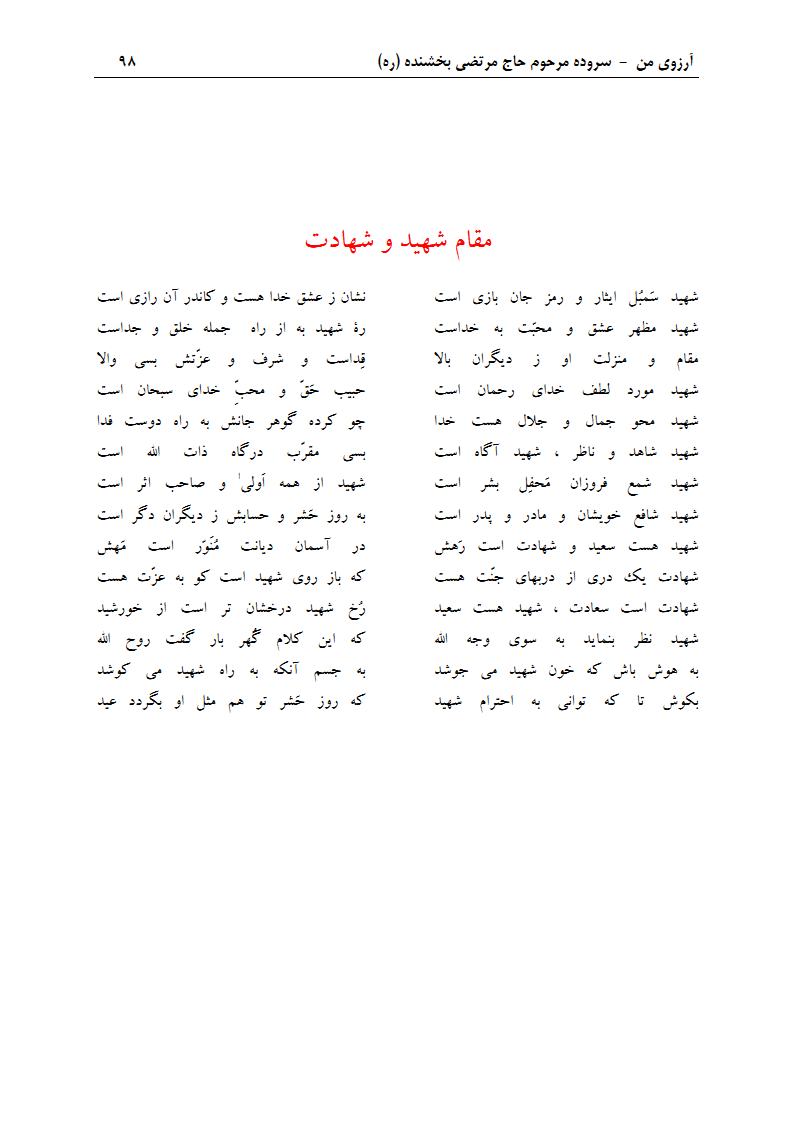 آرزوی من - سروده مرحوم حاج مرتضی بخشنده (ره) ۹۸
مقام شهید و شهادت
شهید سَمبُل ایثار و رمز جان بازی است نشان ز عشق خدا هست و کاندر آن رازی است
شهید مظهر عشق و محبّت به خداست رهٔ شهید به از راه جمله خلق و جداست
مقام و منزلت او ز دیگران بالا قِداست و شرف و عزّتش بسی والا
شهید مورد لطف خدای رحمان است حبیب حَقّ و محبِّ خدای سبحان است
شهید محو جمال و جلال هست خدا چو کرده گوهر جانش به راه دوست فدا
شهید شاهد و ناظر ، شهید آگاه است بسی مقرّب درگاه ذات الله است
شهید شمع فروزان مَحفِل بشر است شهید از همه اَولیٰ و صاحب اثر است
شهید شافع خویشان و مادر و پدر است به روز حَشر و حسابش ز دیگران دگر است
شهید هست سعید و شهادت است رَهش در آسمان دیانت مُنَوّر است مَهش
شهادت یک دری از دربهای جنّت هست که باز روی شهید است کو به عزّت هست
شهادت است سعادت ، شهید هست سعید رُخ شهید درخشان تر است از خورشید
شهید نظر بنماید به سوی وجه الله که این کلام گُهر بار گفت روح الله
به هوش باش که خون شهید می جوشد به جسم آنکه به راه شهید می کوشد
بکوش تا که توانی به احترام شهید که روز حَشر تو هم مثل او بگردد عید